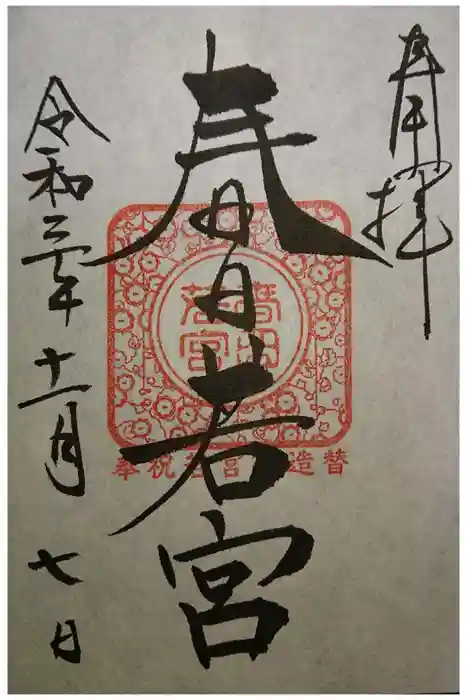 奉拝
春日若宮
春日若宮
奉祝若宮御造替
令和三年十一月七日